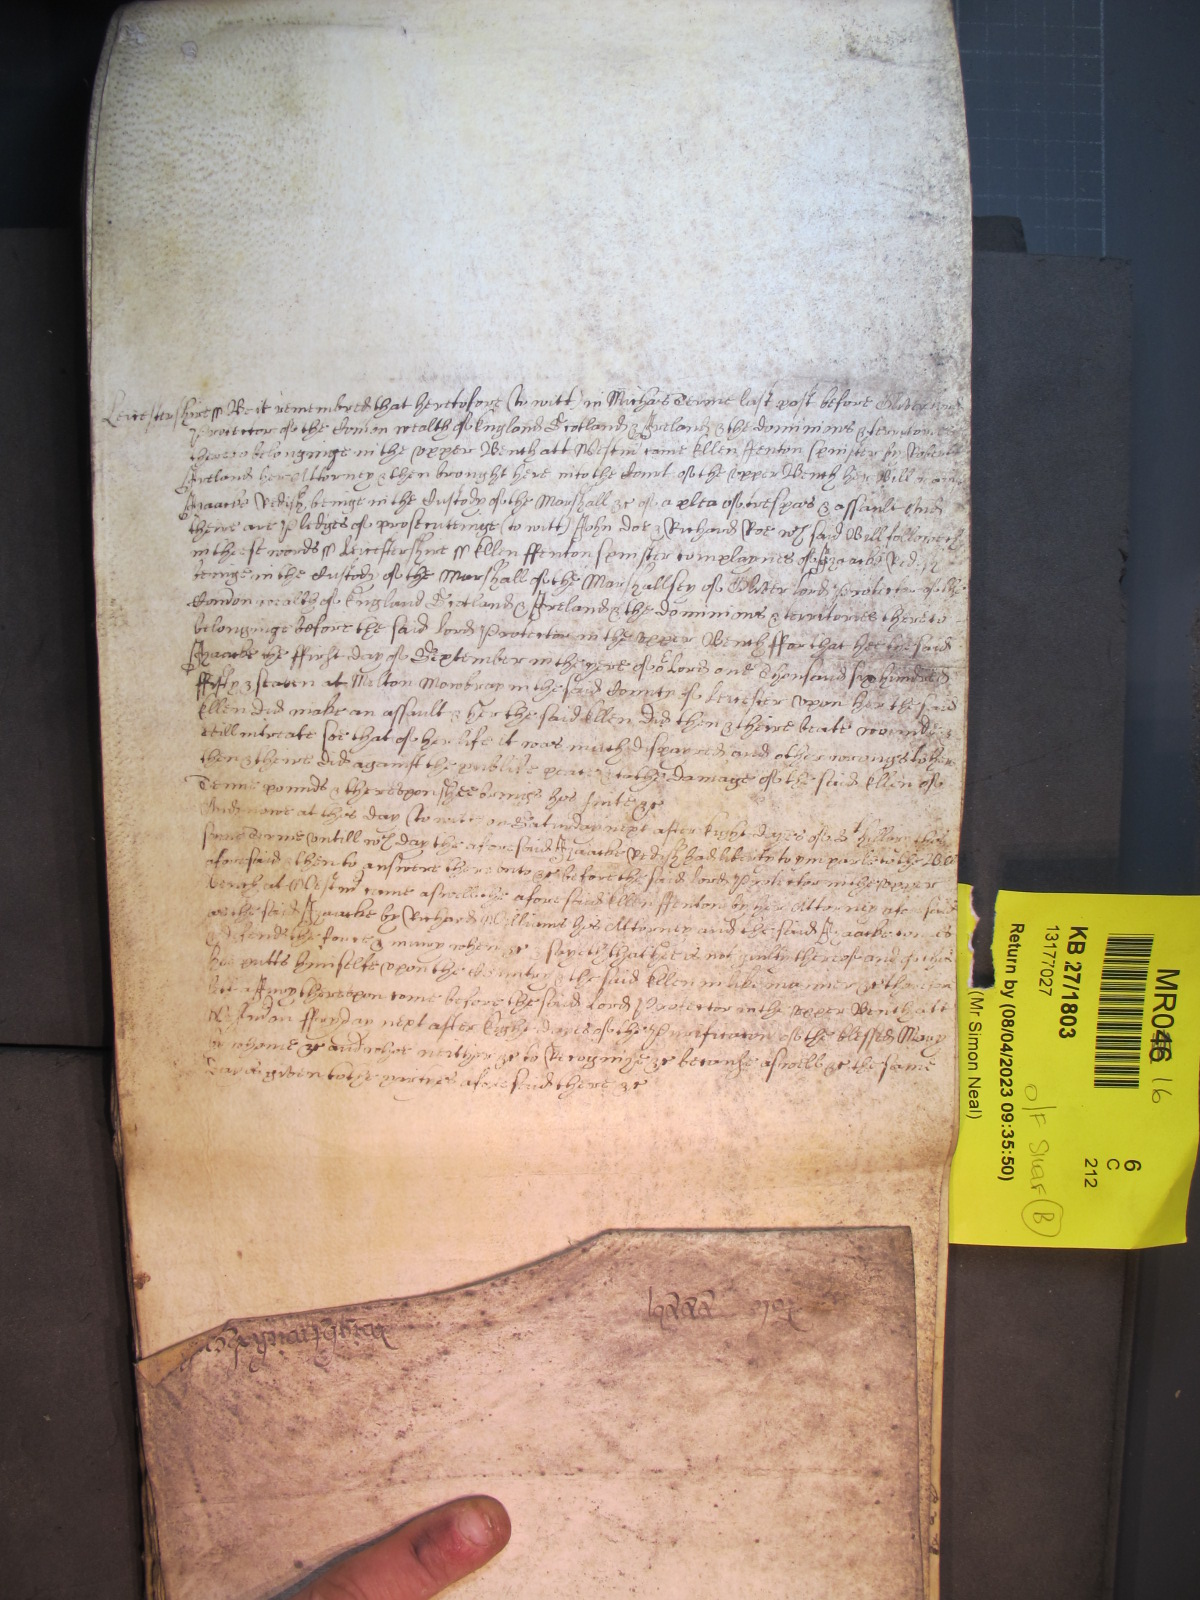 Leicestershire ss Be it remembred that heretofore (to witt) in Michas Terme last past before Oliver Lord
Protector of the Comon wealth of England Scotland & Ireland & the dominions & territories
thereto belonginge in the upper Bench att Westm came Ellen Fenton spinster by
Ireland her Attorney & then brought here into the Court of the upper Bench her Bill
Isaacke Redish beinge in the Custody of the Marshall &c of a plea of trespas & assault And
there are Pledges of prosecutinge (to witt) John Doe & Richard Roe wch said Bill followeth
in these words ss Leicestershire ss Ellen ffenton spinster complaynes of Isaacke Redish
beinge in the Custody of the Marshall of the Marshallsey of Oliver lord Protector of the
Comon wealth of England Scotland & Ireland & the dominions & territories thereto
belonginge before the said lord Protector in the upper Bench ffor that hee the said
Isaacke the ffirst day of September in the yere of or Lord one Thousand six hundred
ffifty & seaven at Melton Mowbray in the said County of Leicester upon her the said
Ellen did make an assault & her the said Ellen did then & there beate wound &
evill intreate soe that of her life it was much dispayred and other wrongs to her
then & there did against the publike peace & to the damage of the said Ellen of
Tenne pounds & thereupon shee brings her suite &c
And nowe at this day (to witt) on Saturday next after Eight dayes of St hillary this
same terme untill wch day the aforesaid Isaacke Redish had liberty to imparle to the Bill
aforesaid & then to answere thereunto &c before the said lord Protector in the upper
Bench at Westm came aswell the aforesaid Ellen ffenton by her Attorney aforesaid
as the said Isaacke by Richard Williams his Attorney and the said Isaacke comes
& defends the force & iniury when &c & sayeth that hee is not guilty thereof and of this
hee putts himselfe upon the Country & the said Ellen in like manner &c therefore
let a Jury thereupon come before the said Lord Protector in the upper Bench att
Westm on ffryday next after Eight dayes of the Purificacon of the blessed Mary
by whome &c and whoe neither &c to Recognize &c because aswell &c the same
day is given to the parties aforesaid there &c
MR046 16
KB 27/1803
13177027
Return by (08/04/2023 09:35:50)
(Mr Simon Neal)
6
C
212
O/F Shar B